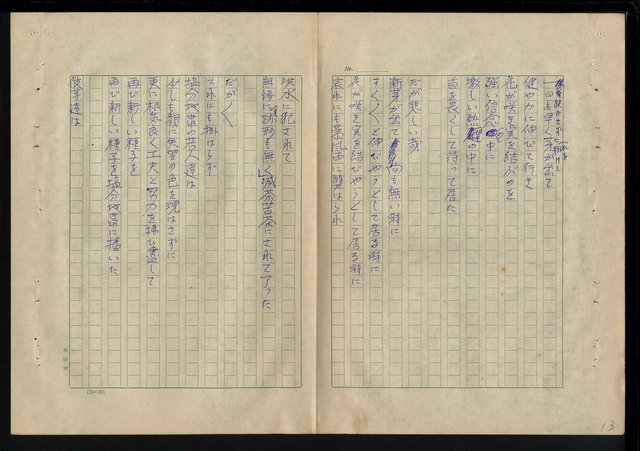 一日も早く芽が出て
健やかに伸びて行き
花が咲き実を結ぶのを
強い信念の中に
激しい熱の中に
首を長くして待って居た
だが悲しい哉
新芽が出て間も無い時に
すく〱と伸びやうとして居る時に
花が咲き実を結びやうとして居る時に
哀れにも暴風雨に襲はられ
洪水に犯されて
無惨に跡形も無く滅茶苦茶にされて了った
だが〱
それにも拘はらず
塩分地帯の若人達は
少しも顔に失望の色を現はさずに
更に根気良く工夫と努力を拂ひ盡して
再び新しい種子を
再び新しい種子を塩分地帯に播いた
彼等達は
No.
(24×25)
13